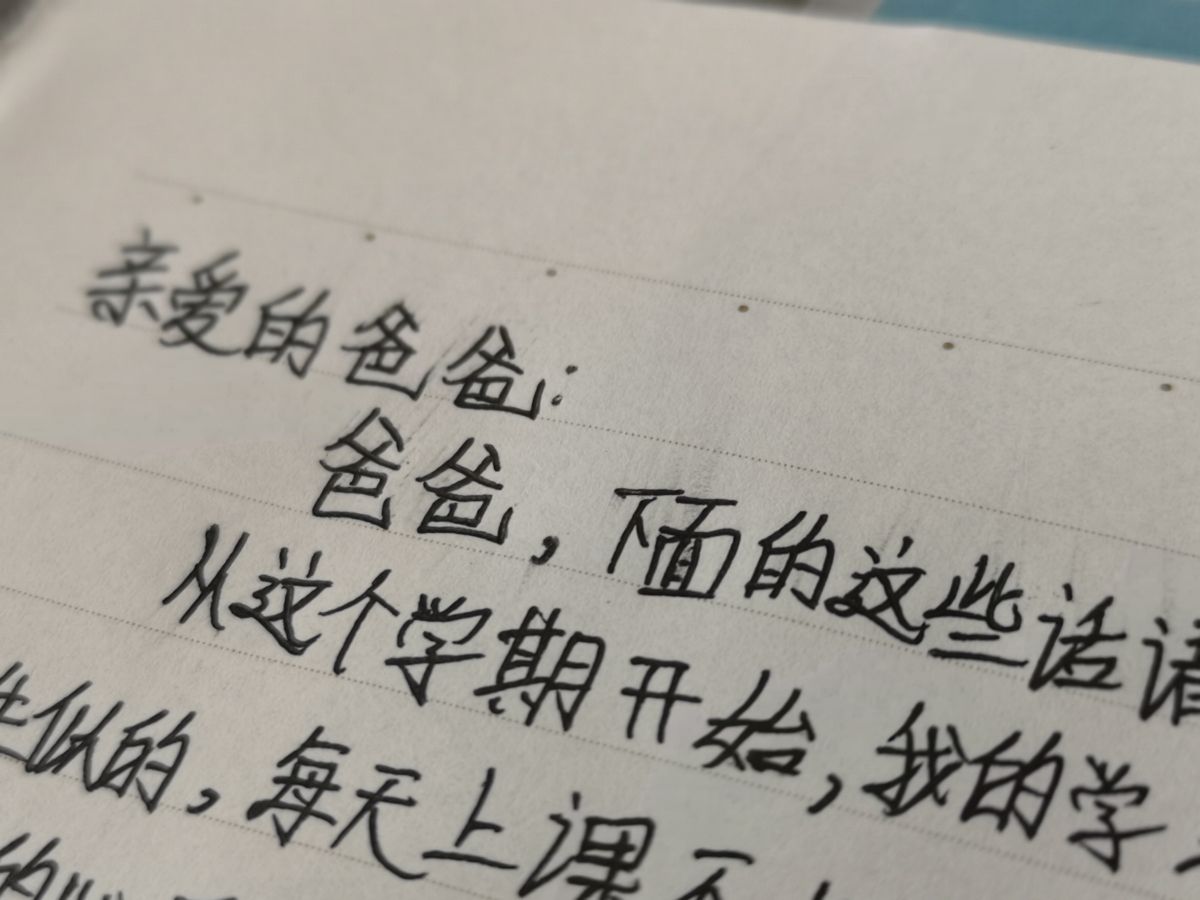 亲爱的爸爸:
爸爸,下面的这些话语
从这个学期开始,我的学
似的,每天上课不
的